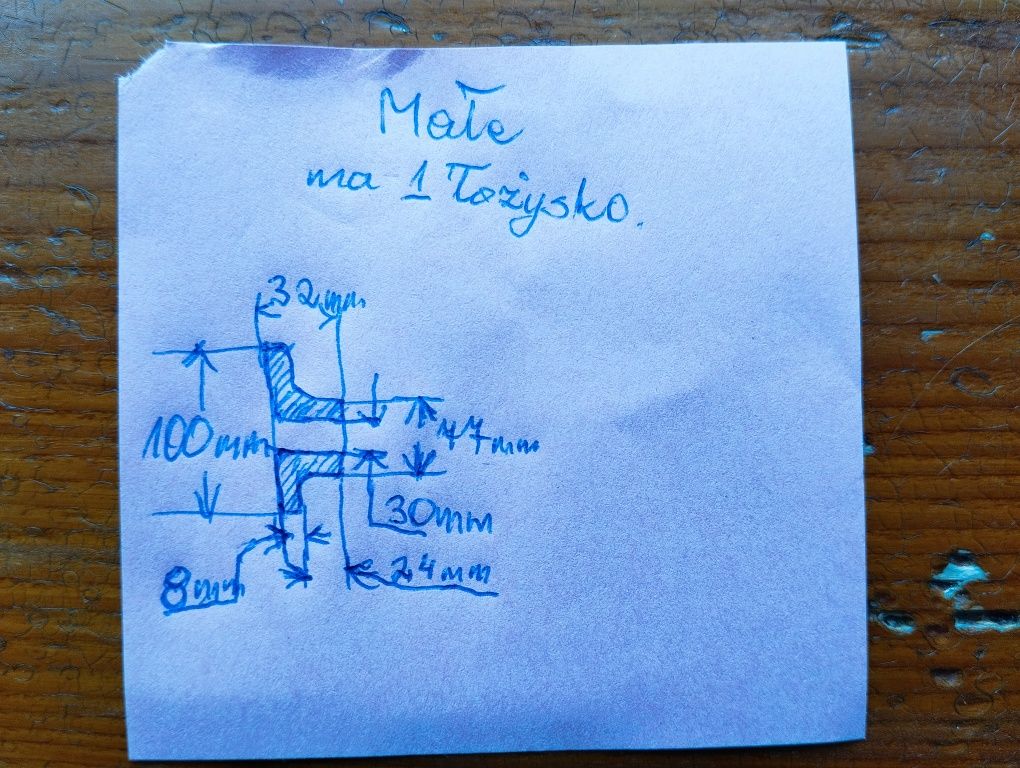 Małe
ma 1 łożysko.
32mm
100mm
47mm
30mm
8mm
24mm